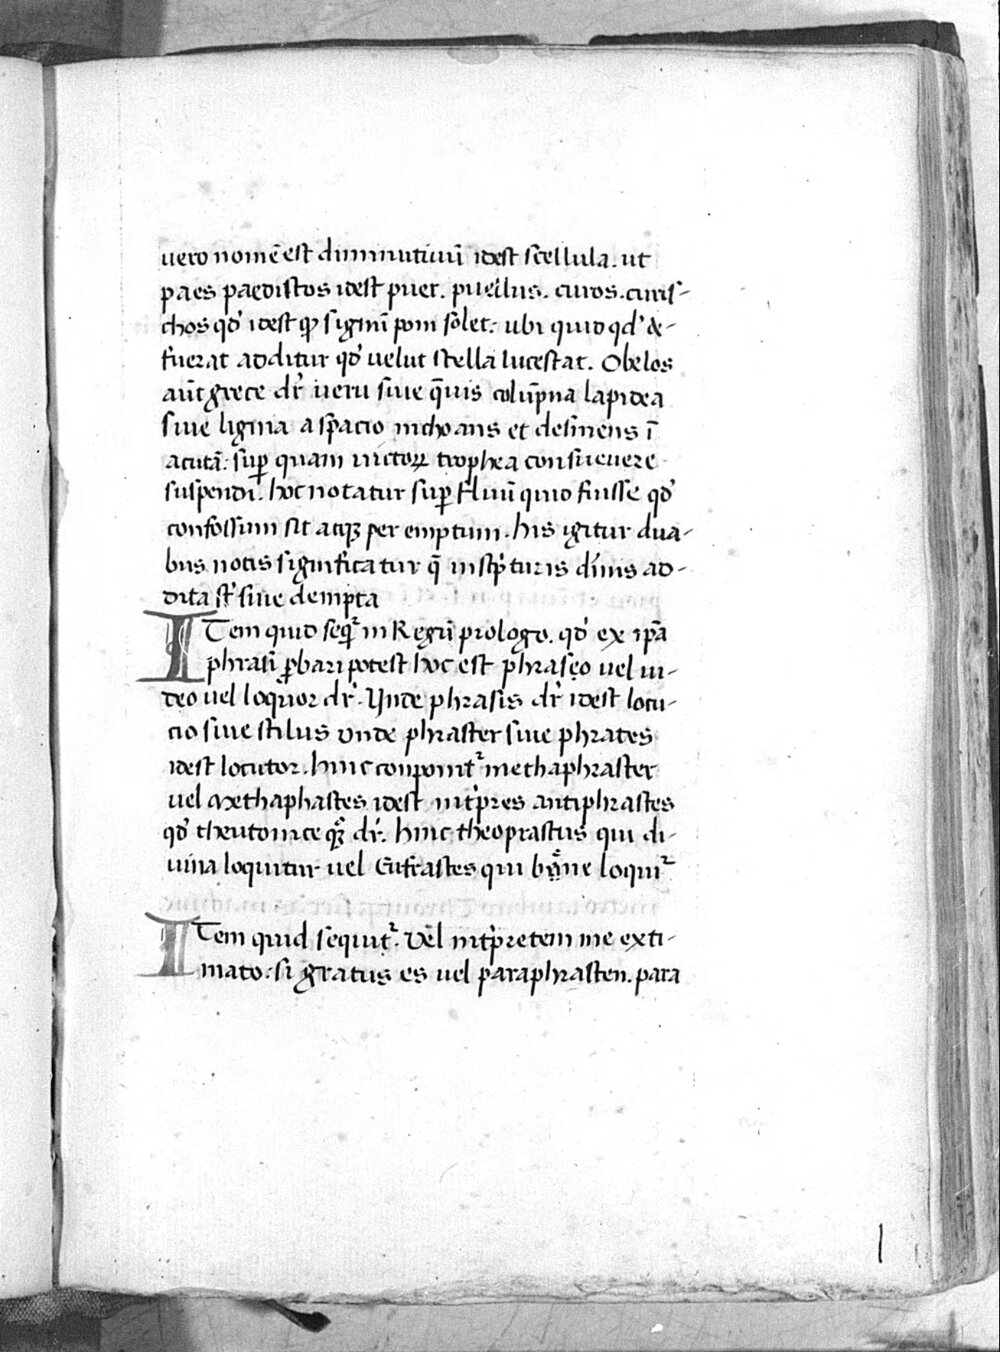 uero nomē est diminutiuū idest stellula. ut
paes paedistos idest puer. puellus. curos. curis-
chos qd' idest qd' signū poni solet: ubi quid qd' de-
fuerat additur qd' uelut stella lucescat. Obelos
aūt grece dr̄ ueru siue q̄uis colūpna lapidea
siue lignia a spacio inchoans et desinens ī
acutā: sup quam uictoꝝ trophea consueuere
suspendi. hoc notatur sup illud quid fuisse qd'
confossum sit atqꝫ per emptum. his igitur dua-
bus notis significatur q̄ in scpturis diuis ad-
dita sr̄ siue dempta
ITem quid seqr̄ in Regū prologo. qd' ex ipa
phrasi ꝓbari potest hoc est phraseo uel ui-
deo uel loquor dr̄. Vnde phrasis dr̄ idest locu-
cio siue stilus unde phraster siue phrates
idest locutor. hinc conponitr̄ methaphraster
uel methaphastes idest intp̄res antiphrastes
qd' theutonice dr̄. hinc theoprastus qui di-
uina loquitur uel Eufrastes qui bene loquitr̄
ITem quid sequitr̄. Vel intp̄retem me exti-
mato: si gratus es uel paraphrasten. para